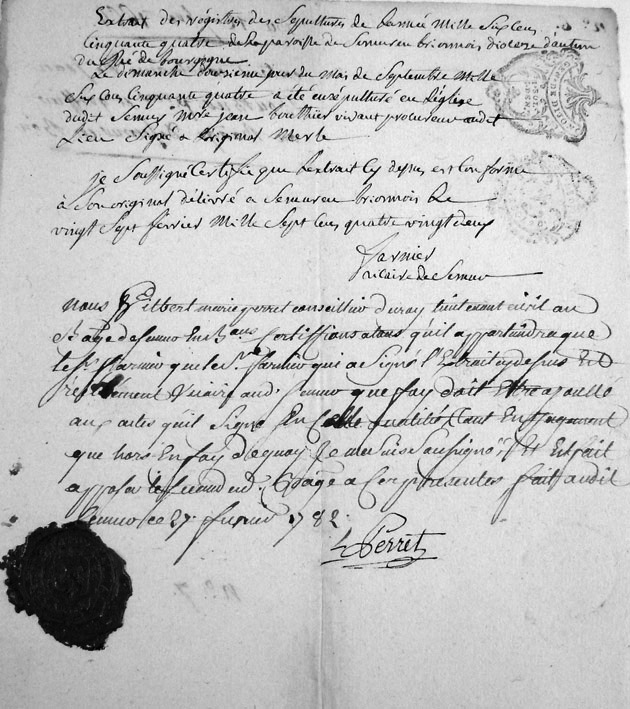 Extrait des régistres des Sepultures de Lannée Mille Six Cens
Cinquante quatre de la paroisse de Semur en brionnois diocèze d'autun
duché de bourgogne
Le dimanche douzieme jour du Mois de Septembre Mille
Six Cens Cinquante quatre a été ensépulturé en L'église
dudit Semur Mre jean bouthier vivant procureur audit
Lieu Signé a L'original Merle
je Soussigné Certifie que L'extrait cy dessus est Conforme
à Son original délivré a Semur en brionnois Le
vingt Sept fevrier Mille Sept Cens quatre vingt deux
farnier
vicaire de Semur
Nous Gilbert marie perret conseiller du roy lieutenant civil au
Certiffions a tous qu'il appartiendra que
le Sr. farnier qui a Signé l'Extrait cy dessus Est
vicaire aud. Semur que foy doit Etre ajoutté
aux actes qu'il Signe En Cette qualité tant En Jugement
que hors En foy de quoy Je me suis Soussigné Et Est fait
apposer le sceau dud. Bage a Ces presentes fait audit
Semur ce 27. fevrier 1782.
Perret
n° 7